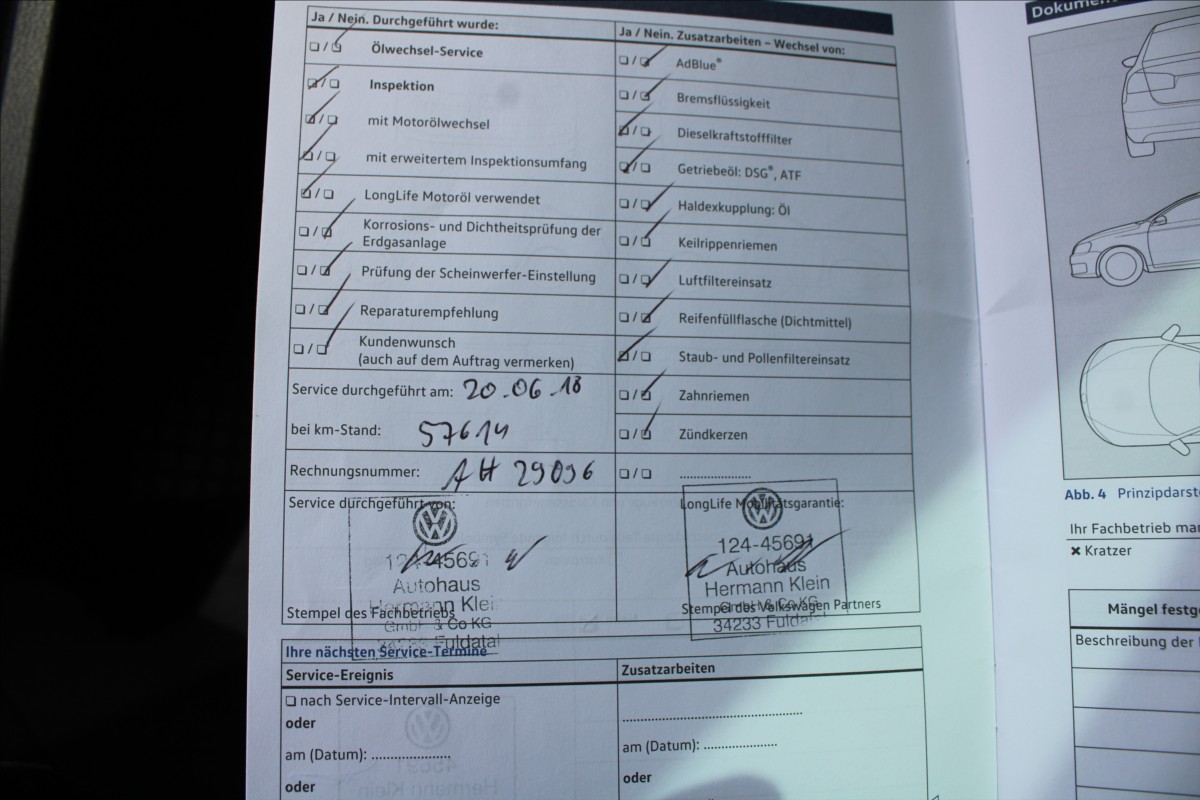 Ja / Nein. Durchgeführt wurde:
❏ / ❏ Ölwechsel-Service
❏ / ❏ Inspektion
❏ / ❏ mit Motorölwechsel
❏ / ❏ mit erweitertem Inspektionsumfang
❏ / ❏ LongLife Motoröl verwendet
❏ / ❏ Korrosions- und Dichtheitsprüfung der
Erdgasanlage
❏ / ❏ Prüfung der Scheinwerfer-Einstellung
❏ / ❏ Reparaturempfehlung
❏ / ❏ Kundenwunsch
(auch auf dem Auftrag vermerken)
Service durchgeführt am: 20.06.18
bei km-Stand: 57614
Rechnungsnummer: AH 29096
Service durchgeführt von:
124-45691
Autohaus
Hermann Klein
GmbH & Co KG
34233 Fuldatal
Stempel des Fachbetriebs
Ja / Nein. Zusatzarbeiten – Wechsel von:
❏ / ❏ AdBlue®
❏ / ❏ Bremsflüssigkeit
❏ / ❏ Dieselkraftstofffilter
❏ / ❏ Getriebeöl: DSG®, ATF
❏ / ❏ Haldexkupplung: Öl
❏ / ❏ Keilrippenriemen
❏ / ❏ Luftfiltereinsatz
❏ / ❏ Reifenfüllflasche (Dichtmittel)
❏ / ❏ Staub- und Pollenfiltereinsatz
❏ / ❏ Zahnriemen
❏ / ❏ Zündkerzen
❏ / ❏ ....................
LongLife Mobilitätsgarantie:
124-45691
Autohaus
Hermann Klein
GmbH & Co KG
34233 Fuldatal
Stempel des Volkswagen Partners
Ihre nächsten Service-Termine
Service-Ereignis
❏ nach Service-Intervall-Anzeige
oder
am (Datum): ....................
oder
Zusatzarbeiten
..................................................
am (Datum): ....................
oder
Dokumen
Abb. 4 Prinzipdarst
Ihr Fachbetrieb mar
✖ Kratzer
Mängel festge
Beschreibung der